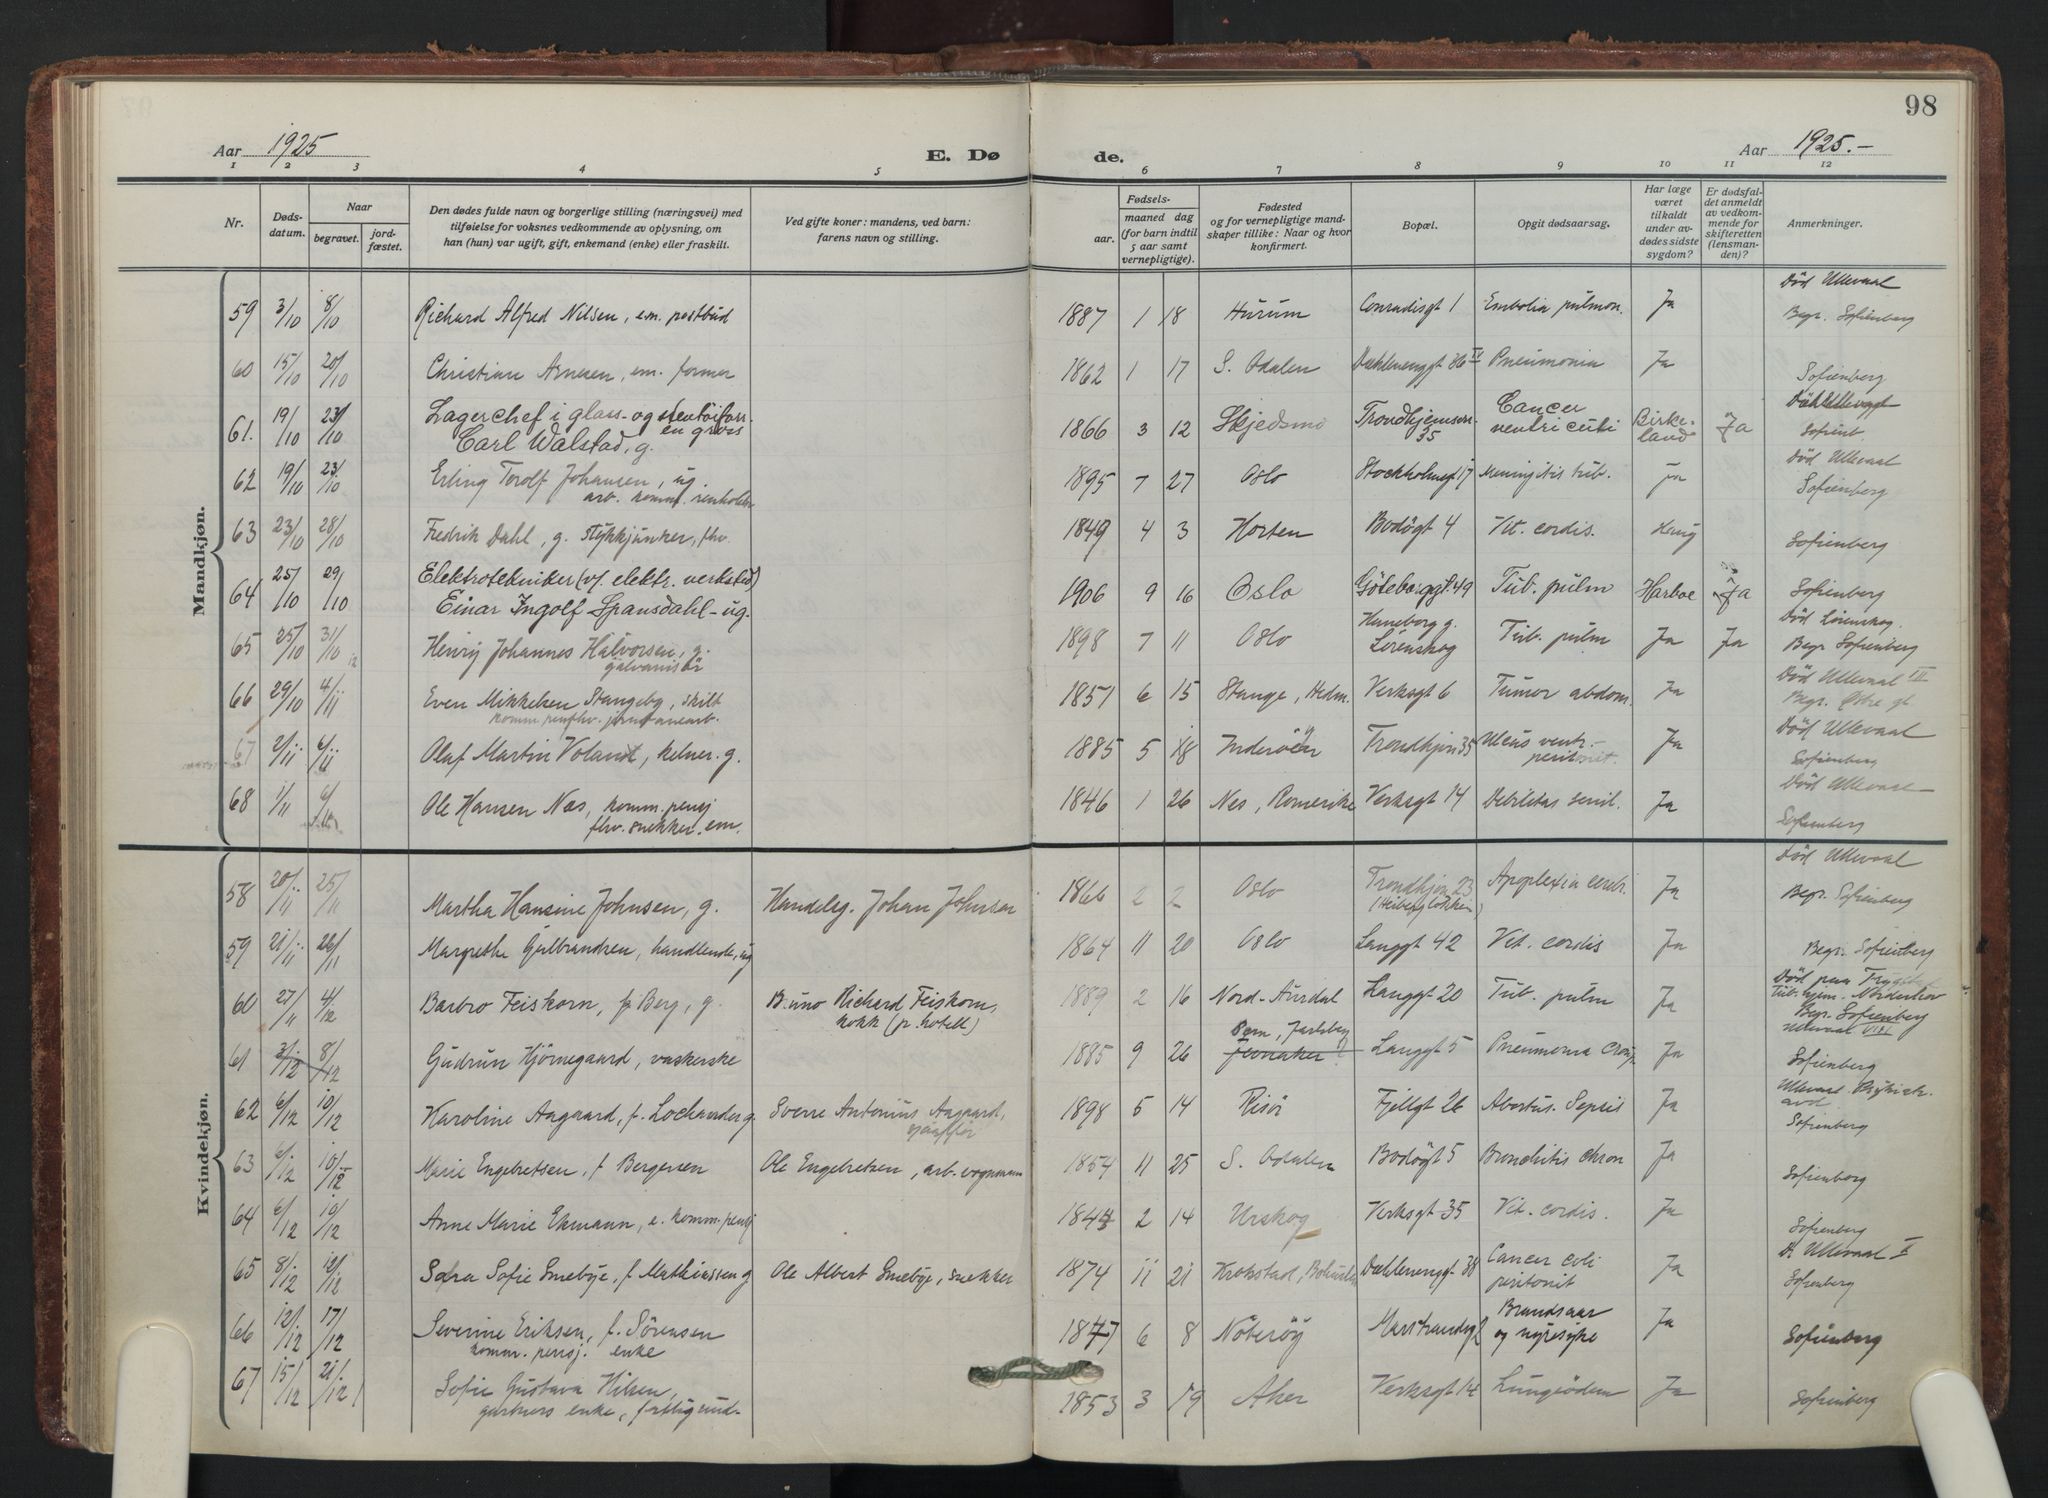 98
Aar 1925
E. Døde.
Aar 1925.-
1 2 3 4 5 6 7 8 9 10 11 12
Nr.
Døds-
datum.
Naar
begravet.
jord-
fæstet.
Den dødes fulde navn og borgerlige stilling (næringsvei) med
tilføielse for voksnes vedkommende av oplysning, om
han (hun) var ugift, gift, enkemand (enke) eller fraskilt.
Ved gifte koner: mandens, ved barn:
farens navn og stilling.
Fødsels-
aar.
maaned dag
(for barn indtil
5 aar samt
vernepligtige).
Fødested
og for vernepligtige mand-
skaper tillike: Naar og hvor
konfirmert.
Bopæl.
Opgit dødsaarsag.
Har læge
været
tilkaldt
under av-
dødes sidste
sygdom?
Er dødsfal-
det anmeldt
av vedkom-
mende for
skifteretten
(lensman-
den)?
Anmerkninger.
Mandkjøn.
59 3/10 8/10 Richard Alfred Nilsen, em. postbud 1887 1 18 Hurum Conradisgt 1 Embolia pulmon. Ja Død Ullevaal
Begr. Sofienberg
60 15/10 20/10 Christian Arnesen, em. former 1862 1 17 S. Odalen Dælenenggt 36 IV Pneumonia Ja Sofienberg
61. 19/10 23/10 Lagerchef i glass- og stentøiforr.
en gros
Carl Walstad, g. 1866 3 12 Skjedsmo Trondhjemsvn 35 Cancer
ventriculi Birke-
land Ja Sofienb.
62 19/10 23/10 Erling Torolf Johansen, ug.
arb. komm. renholdsv. 1895 7 27 Oslo Stockholmsgt 17 Meningitis tub. Ja Død Ullevaal
Sofienberg
63 23/10 28/10 Fredrik Dahl, g. stykkjunker, fhv. 1849 4 3 Horten Bodøgt 4 Vit. cordis. Sofienberg
64 25/10 29/10 Elektrotekniker (v/ elektr. verksted)
Einar Ingolf Spansdahl - ug. 1906 9 16 Oslo Göteborggt. 49 Tub. pulm Harboe Ja Sofienberg
65 25/10 31/10 Henry Johannes Halvorsen, g.
galvanisør 1898 7 11 Oslo Haneborg g.
Lørenskog Tub. pulm Ja Ja Død Lørenskog.
Begr Sofienberg
66 29/10 4/11 Even Mikkelsen Stangeby, skilt
1851 6 15 Stange, Hedm. Verksgt 6 Tumor abdom. Ja Død Ullevaal III
Begr. Østre gl.
67 2/11 6/11 Olaf Martin Voland, kelner. g. 1885 5 18 Inderøen Trondhjsvn 35 Ulcus ventr.-
peritonit. Ja Død Ullevaal
Sofienberg
68 1/11 6/11 Ole Hansen Næs, komm. pensj
fhv. snekker. em. 1846 1 26 Nes, Romerike Verksgt 14 Debilitas senil. Ja Død Ullevaal
Sofienberg
Kvindekjøn.
58 20/11 25/11 Martha Hansine Johnsen, g. Handelsg. Johan Johnsen 1866 2 2 Oslo Trondhjsvn 23
(Heiberg løkken) Apoplexia cerebri. Ja Død Ullevaal
Begr. Sofienberg
59 21/11 26/11 Margrethe Gulbrandsen, handlende, ug 1864 11 20 Oslo Langgt 42 Vit. cordis Ja Begr. Sofienberg
60 27/11 4/12 Barbro Feiskorn, f. Berg, g. Bruno Richard Feiskorn,
kokk (p. hotell) 1889 2 16 Nord-Aurdal Langgt 20 Tub. pulm Ja Død paa
Tub. hjem. Norderhov
Begr. Sofienberg
61 3/12 8/12 Gudrun Hjørnegaard, vaskerske 1885 9 26 Jarlsberg
Langgt 5 Pneumonia Croup. Ja Ullevaal VIII
Sofienberg
62 6/12 10/12 Karoline Aagaard, f. g. Sverre Antonius Aagaard,
1898 5 14 Risør Fjellgt 26 Abortus. Sepsis Ja Ullevaal Psykiatr.
avd.
Sofienberg
63 6/12 10/12 Marie Engebretsen, f. Bergersen Ole Engebretsen, arb. vognmann 1854 11 25 S. Odalen Bodøgt 5 Bronchitis chron Ja Sofienberg
64 6/12 10/12 Anne Marie Ekmann, e. komm. pensj 1847 2 14 Urskog Verksgt 35 Vit. cordis. Ja Sofienberg
65 8/12 12/12 Sofie Smebye, f. Mathiassen g Ole Albert Smebye, snekker 1874 11 21 Krokstad, Bohuslen Dælenenggt 38 Cancer coli
peritonit Ja D. Ullevaal X
Sofienberg
66 12/12 17/12 Severine Eriksen, f. Sørensen
komm. pensj. enke 1847 6 8 Nøterøy Marstrandgt 2 Brandsaar
og nyresyke Ja Sofienberg
67 15/12 21/12 Sofie Gustava Nilsen,
gartners enke, fattigund- 1853 3 19 Aker Verksgt 14 Lungeödem Ja Sofienberg